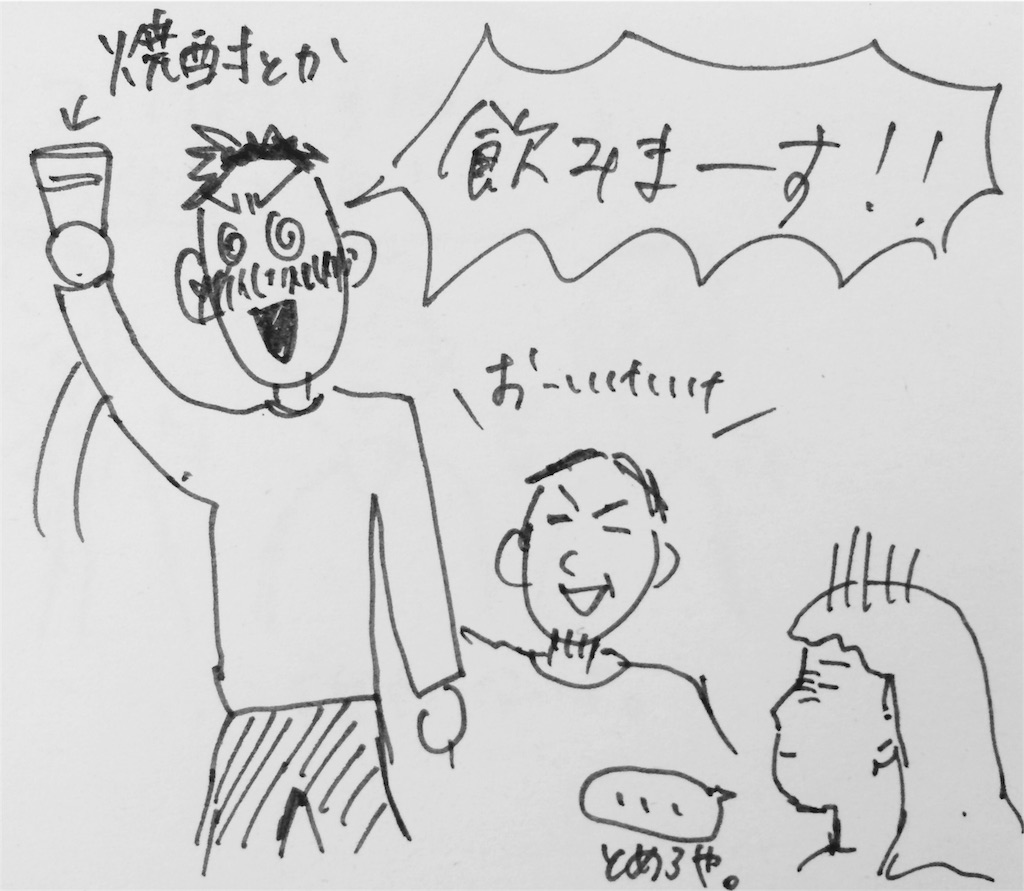 焼酎とか
飲みまーす!!
おーいいけいけ
...
とめろや。